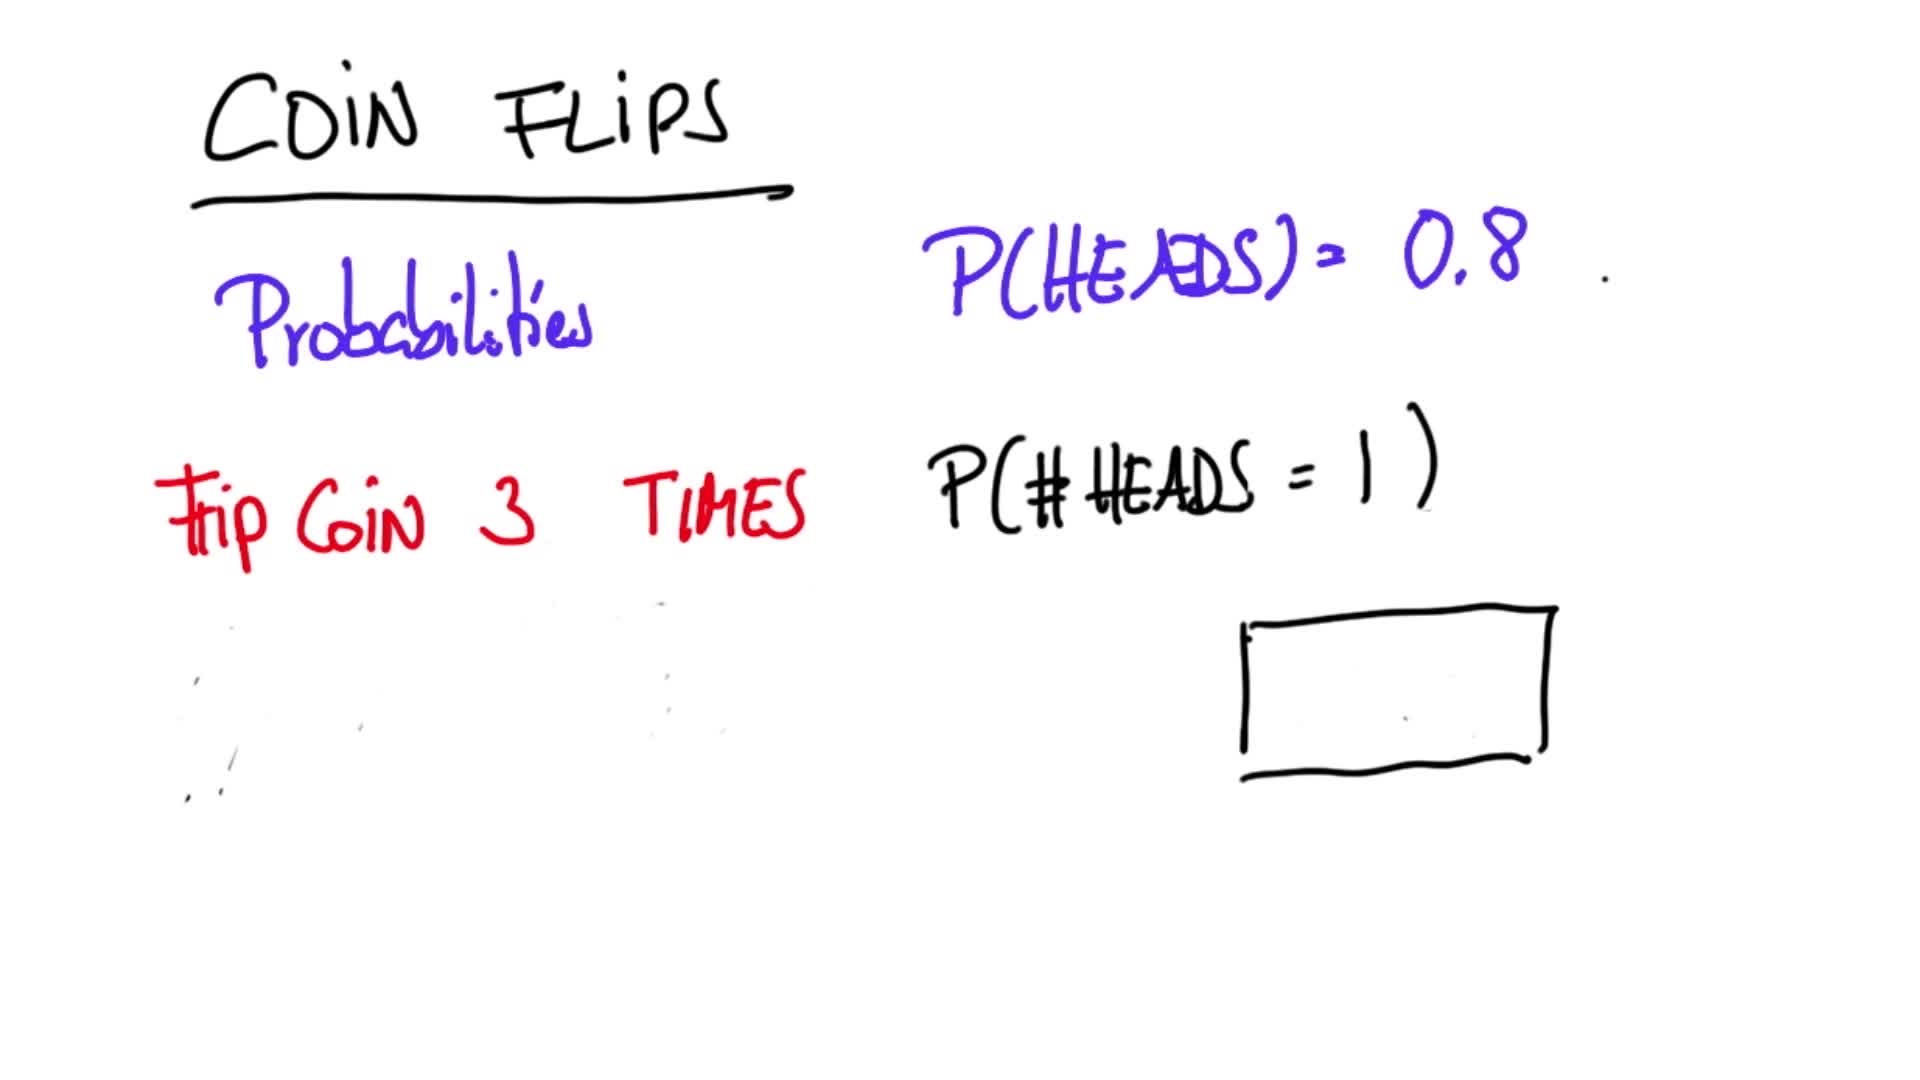 COIN FLIPS
Probabilities
P(HEADS) = 0.8
Flip COIN 3 TIMES
P(# HEADS = 1)